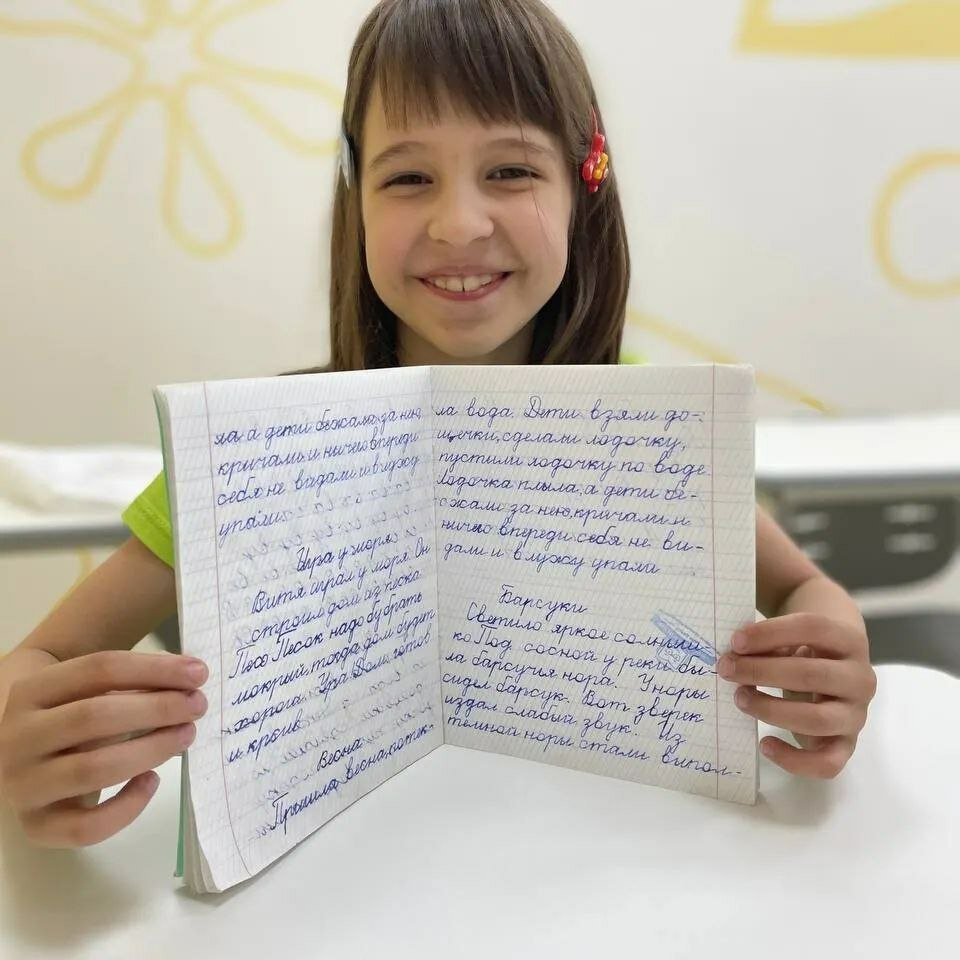 ла, а дети бежали за нею,
кричали и ничего впереди
себя не видали и в лужу
упали.
Игра у моря
Витя играл у моря. Он
строил дом из песка.
Песо Песок надо бу брать
мокрый, тогда дом будит
хорош. Ура! Дом готов
и красив.
Весна
Пришла весна, потек-
ла вода. Дети взяли до-
щечки, сделали лодочку,
пустили лодочку по воде
Лодочка плыла, а дети бе-
жали за нею, кричали и
ничего впереди себя не ви-
дали и в лужу упали
Барсуки
Светило яркое солныш-
ко Под сосной у реки бы-
ла барсучия нора. У норы
сидел барсук. Вот зверек
издал слабый звук. Из
темной норы стали выпол-